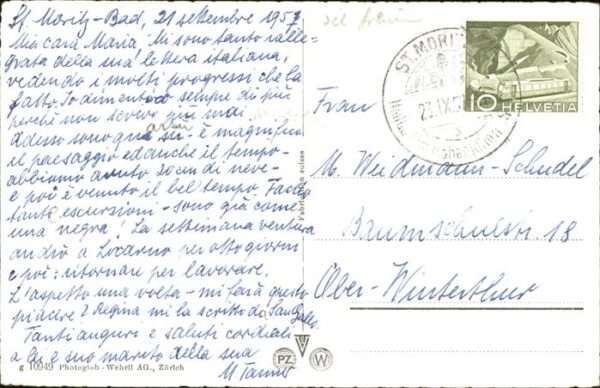 St. Moritz-Bad, 21 settembre 1952
Mia cara Maria, Mi sono tanto ralle-
grata della sua lettera italiana,
vedendo i molti progressi che la
fatto. Io dimentico sempre di più
perchè non scrivo quasi mai.
Adesso sono qua è magnifico
il paesaggio ed anche il tempo-
abbiamo avuto 20 cm di neve-
e poi è venuto il bel tempo. Faccio
tante escursioni - sono già come
una negra! La settimana ventura
andrò a Locarno per otto giorni
e poi: ritornare per lavorare.
L'aspetto una volta - mi farà questo
piacere? Regina mi la scritto da San Gallo.
Tanti auguri e saluti cordiali
a Lei e suo marito della sua
M Tanner
g 10949 Photoglob-Wehrli AG., Zürich
Fabrication suisse
PZ W
ST. MORITZ
10 HELVETIA
Frau
M. Weidmann-Schudel
Baumschulstr. 18
Ober-Winterthur